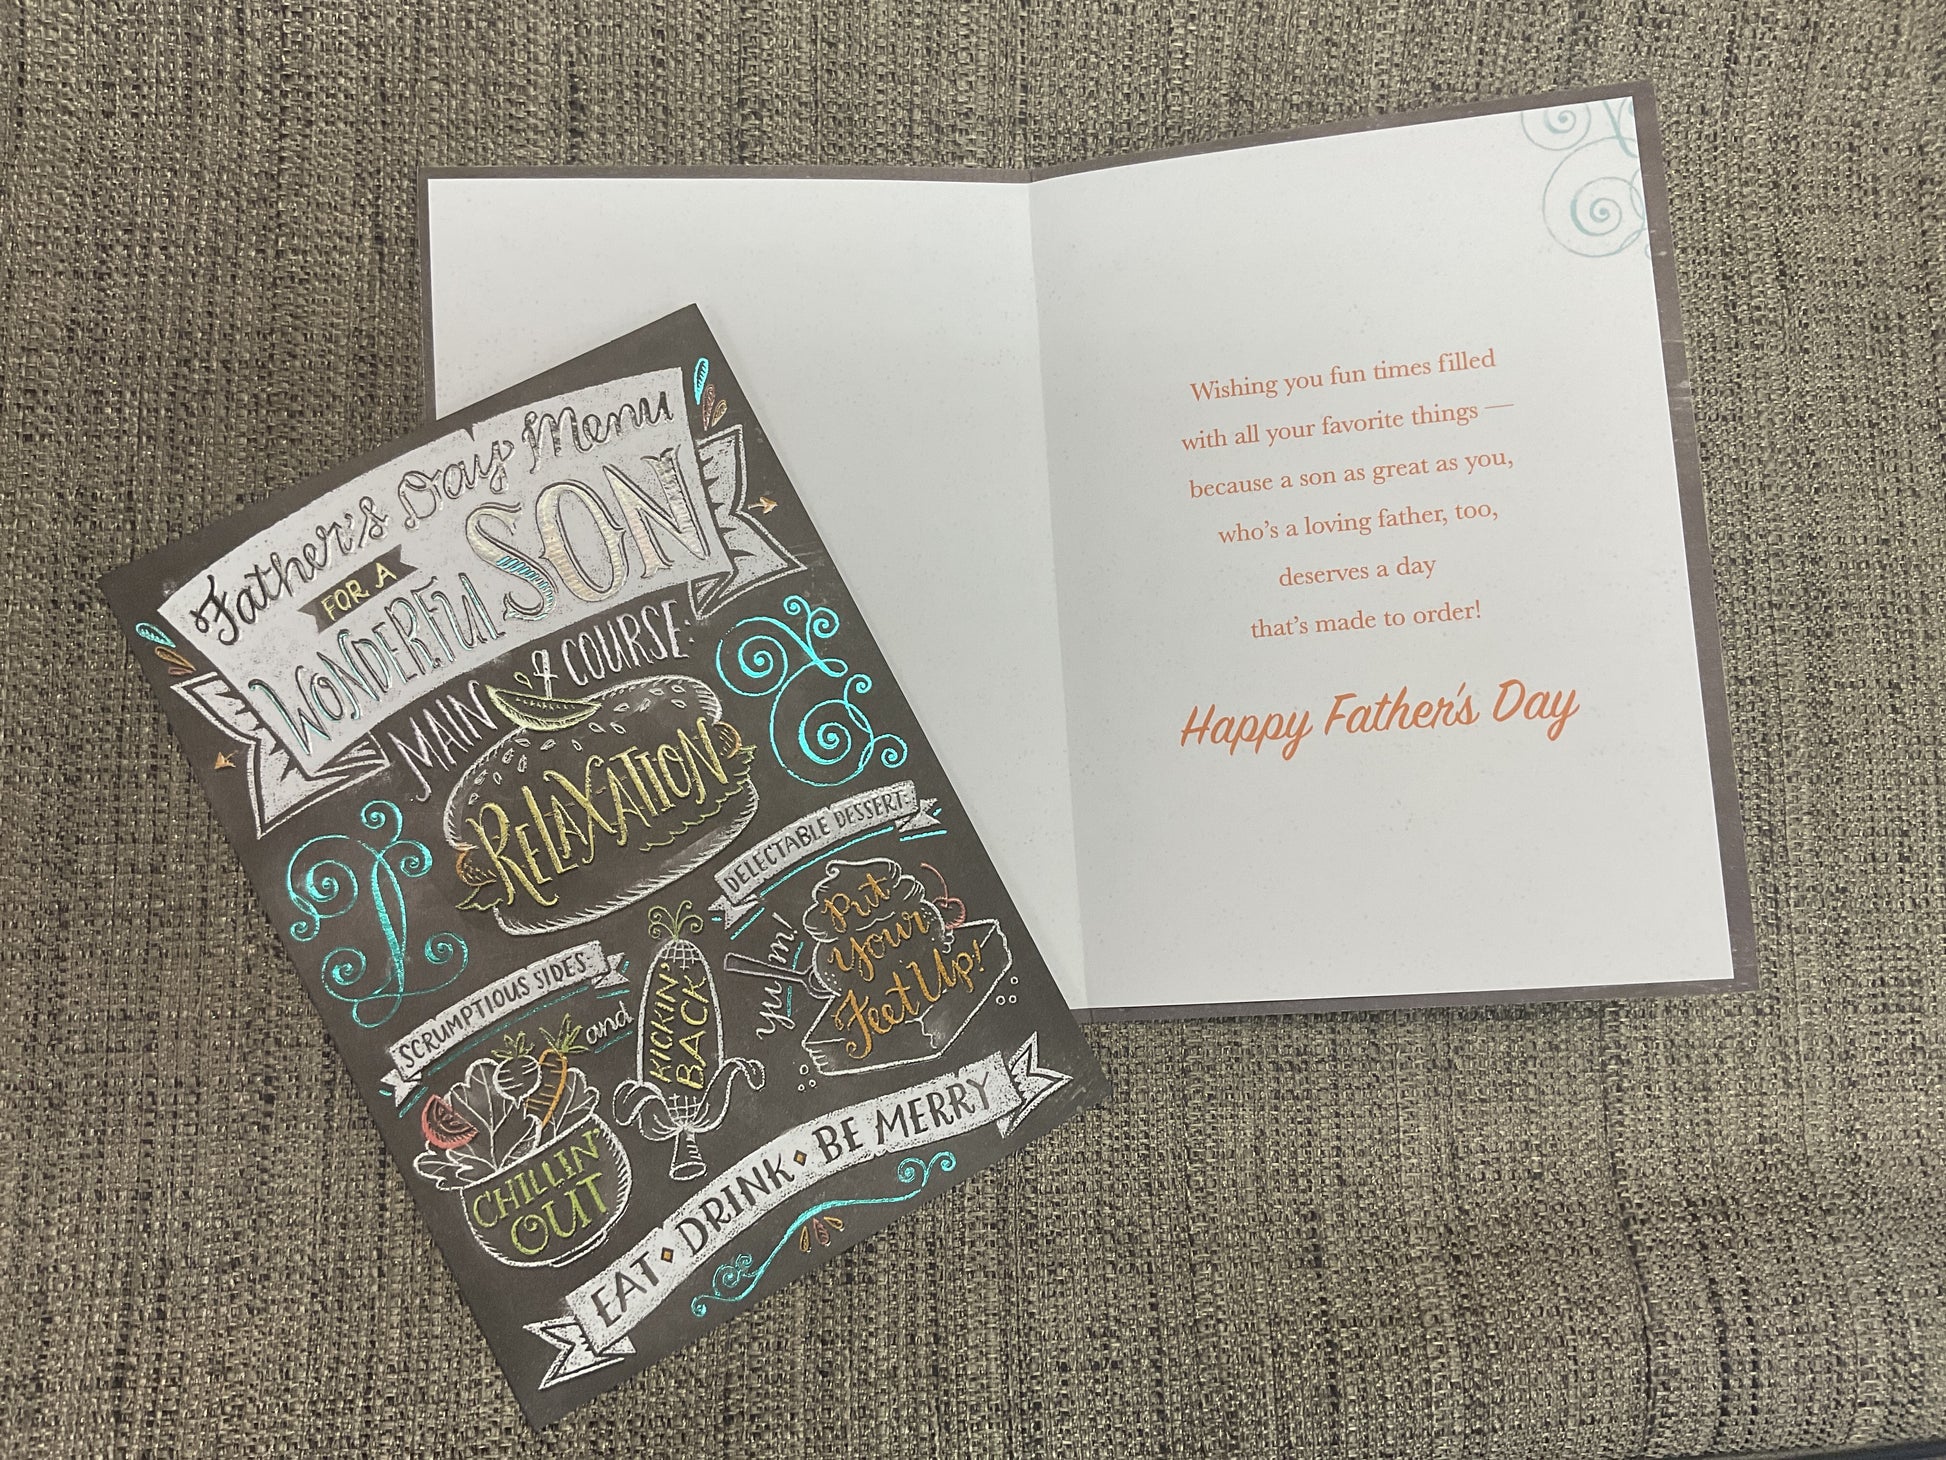 Father's Day Menu
FOR A
WONDERFUL SON
MAIN COURSE:
RELAXATION
SCRUMPTIOUS SIDES:
CHILLIN'
OUT
and
KICKIN'
BACK
DELECTABLE DESSERT:
yum!
Put
Your
Feet Up!
EAT • DRINK • BE MERRY
Wishing you fun times filled
with all your favorite things —
because a son as great as you,
who's a loving father, too,
deserves a day
that's made to order!
Happy Father's Day